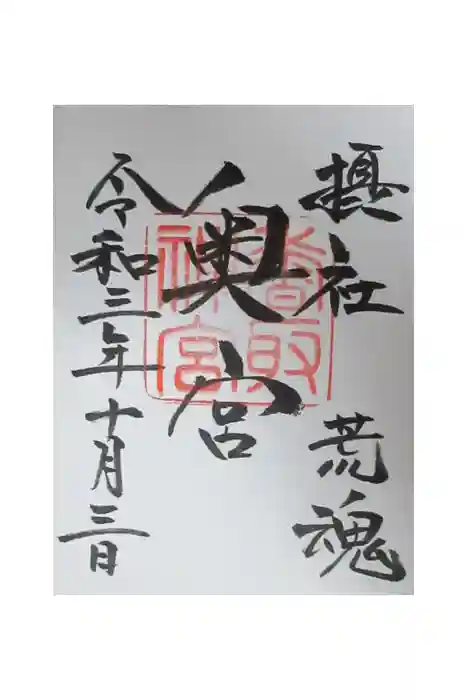 摂社 荒魂
奥宮
香取神宮
令和三年十月三日